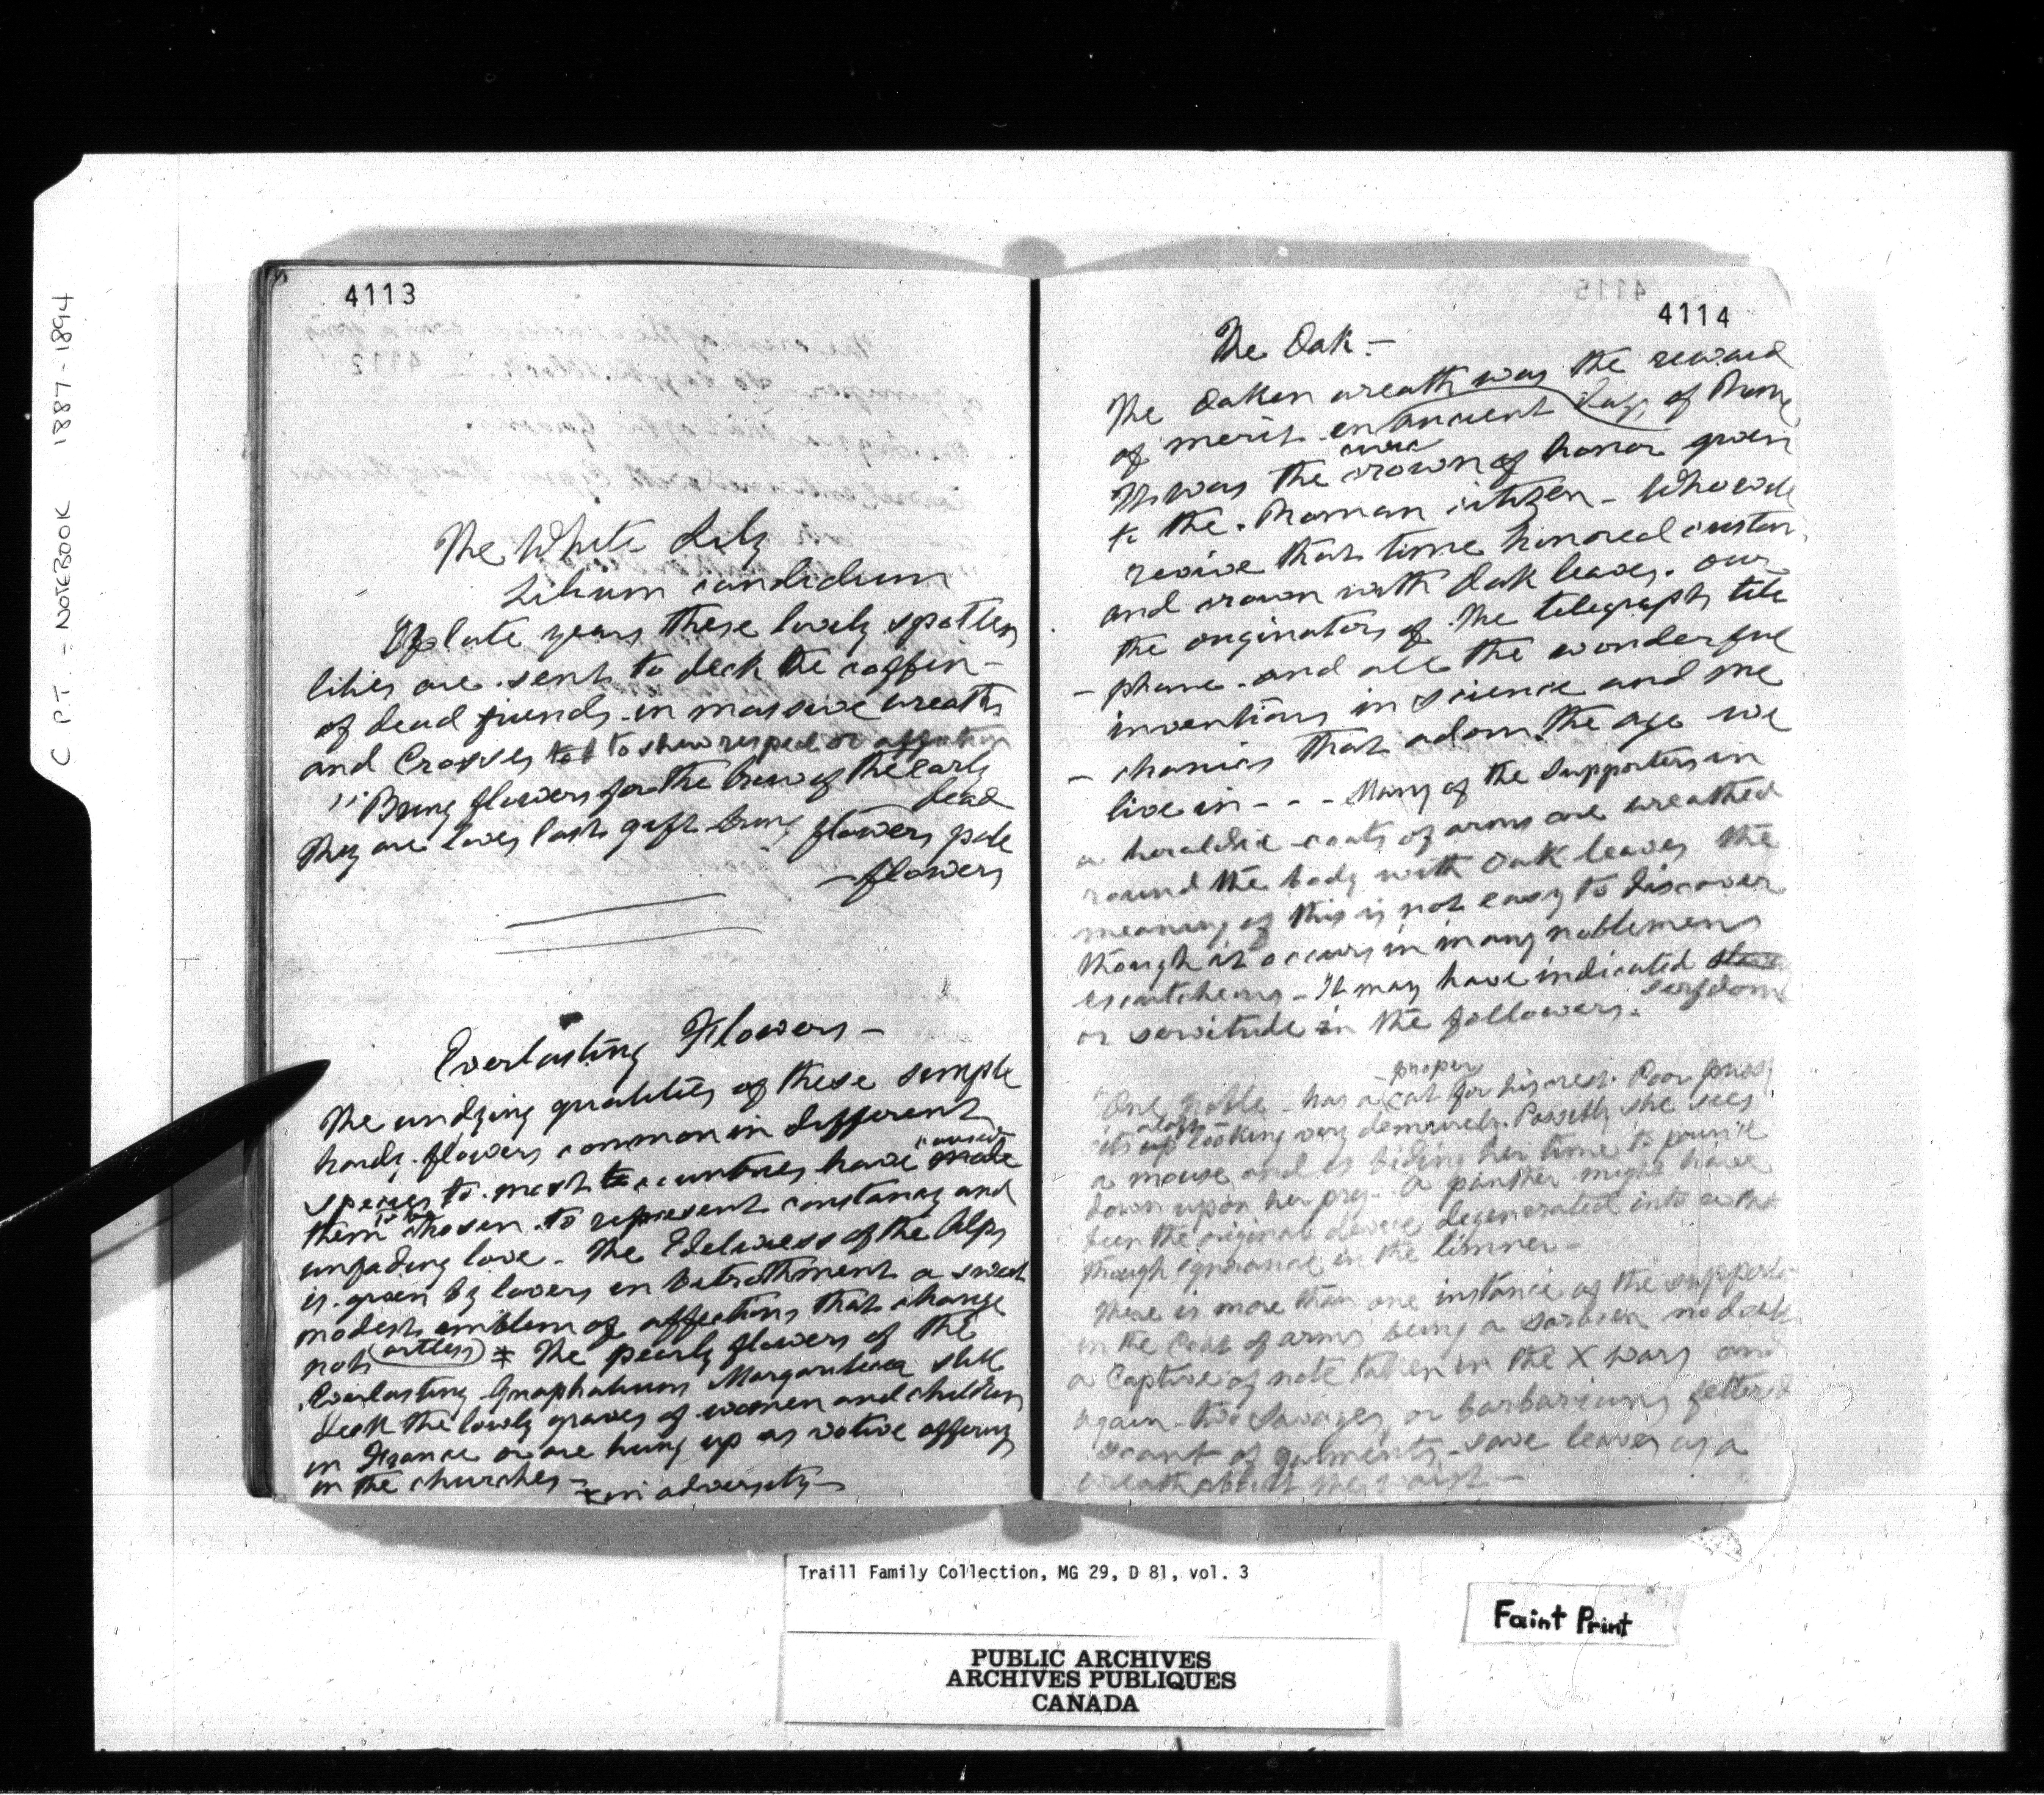 C P.T. = NOTEBOOK 1887-1894
4113
The White Lily
Lilium candidum
Of late years these lovely spotless
lilies are sent to deck the coffin -
of dead friends in massive wreaths
and Crosses to shew respect or affection
"Bring flowers for the brow of the early
dead
They are loves last gift bring flowers pale
- flowers
Everlasting Flowers -
The undying qualities of these simple
hardy flowers common in different
caused
species to most countries have made
to be
them chosen to represent constancy and
unfading love - The Edelweess of the Alps
is given by lovers in betrothment a sweet
modest emblem of affections that change
not (artless) * The pearly flowers of the
Everlasting Gnaphalium Margaritacea still
deck the lowly graves of women and children
in France or are hung up as votive offerings
in the churches -
* in adversity -
4114
The Oak -
The Oaken wreath was the reward
of merit in ancient days of Rome
civic
It was the crown of honor given
to the Roman citizen - Who will
revive that time honored custom
and crown with Oak leaves our
the originators of the telegraph tele
- phone and all the wonderful
inventions in science and me
- chanics that adorn the age we
live in - - - Many of the Supporters in
a heraldic coats of arms are wreathed
round the body with Oak leaves the
meaning of this is not easy to discover
though it occurs in many noblemens
escutcheons - It may have indicated
serfdom
or servitude in the followers.
proper
"One noble - has a cat for his crest. Poor pussy
sits up looking very demurely. Possibly she sees
a mouse and is biding her time to pounce
down upon her prey - A panther might have
been the original device degenerated into a cat
through ignorance in the limner -
There is more than one instance of the supporter
in the Coat of arms being a Saracen no doubt
a Captive of note taken in the X wars and
again two Savages or barbarians fettered
scant of garments - save leaves as a
wreath about the waist -
Traill Family Collection, MG 29, D 81, vol. 3
Faint Print
PUBLIC ARCHIVES
ARCHIVES PUBLIQUES
CANADA